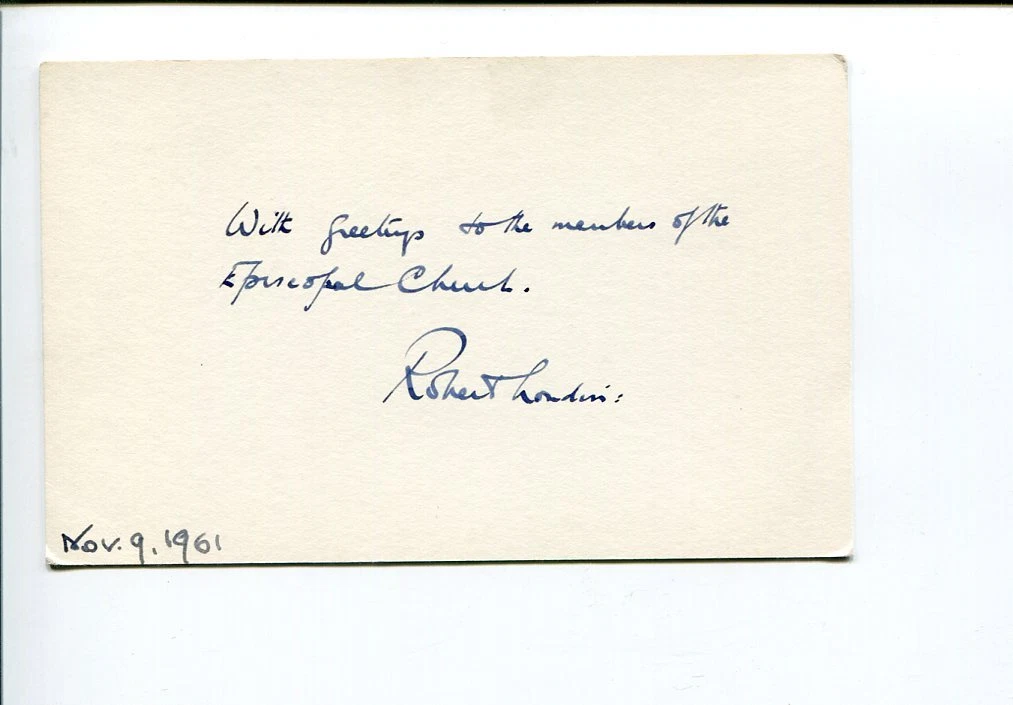 With greetings to the members of the
Episcopal Church.
Robert Londin:
Nov. 9, 1961